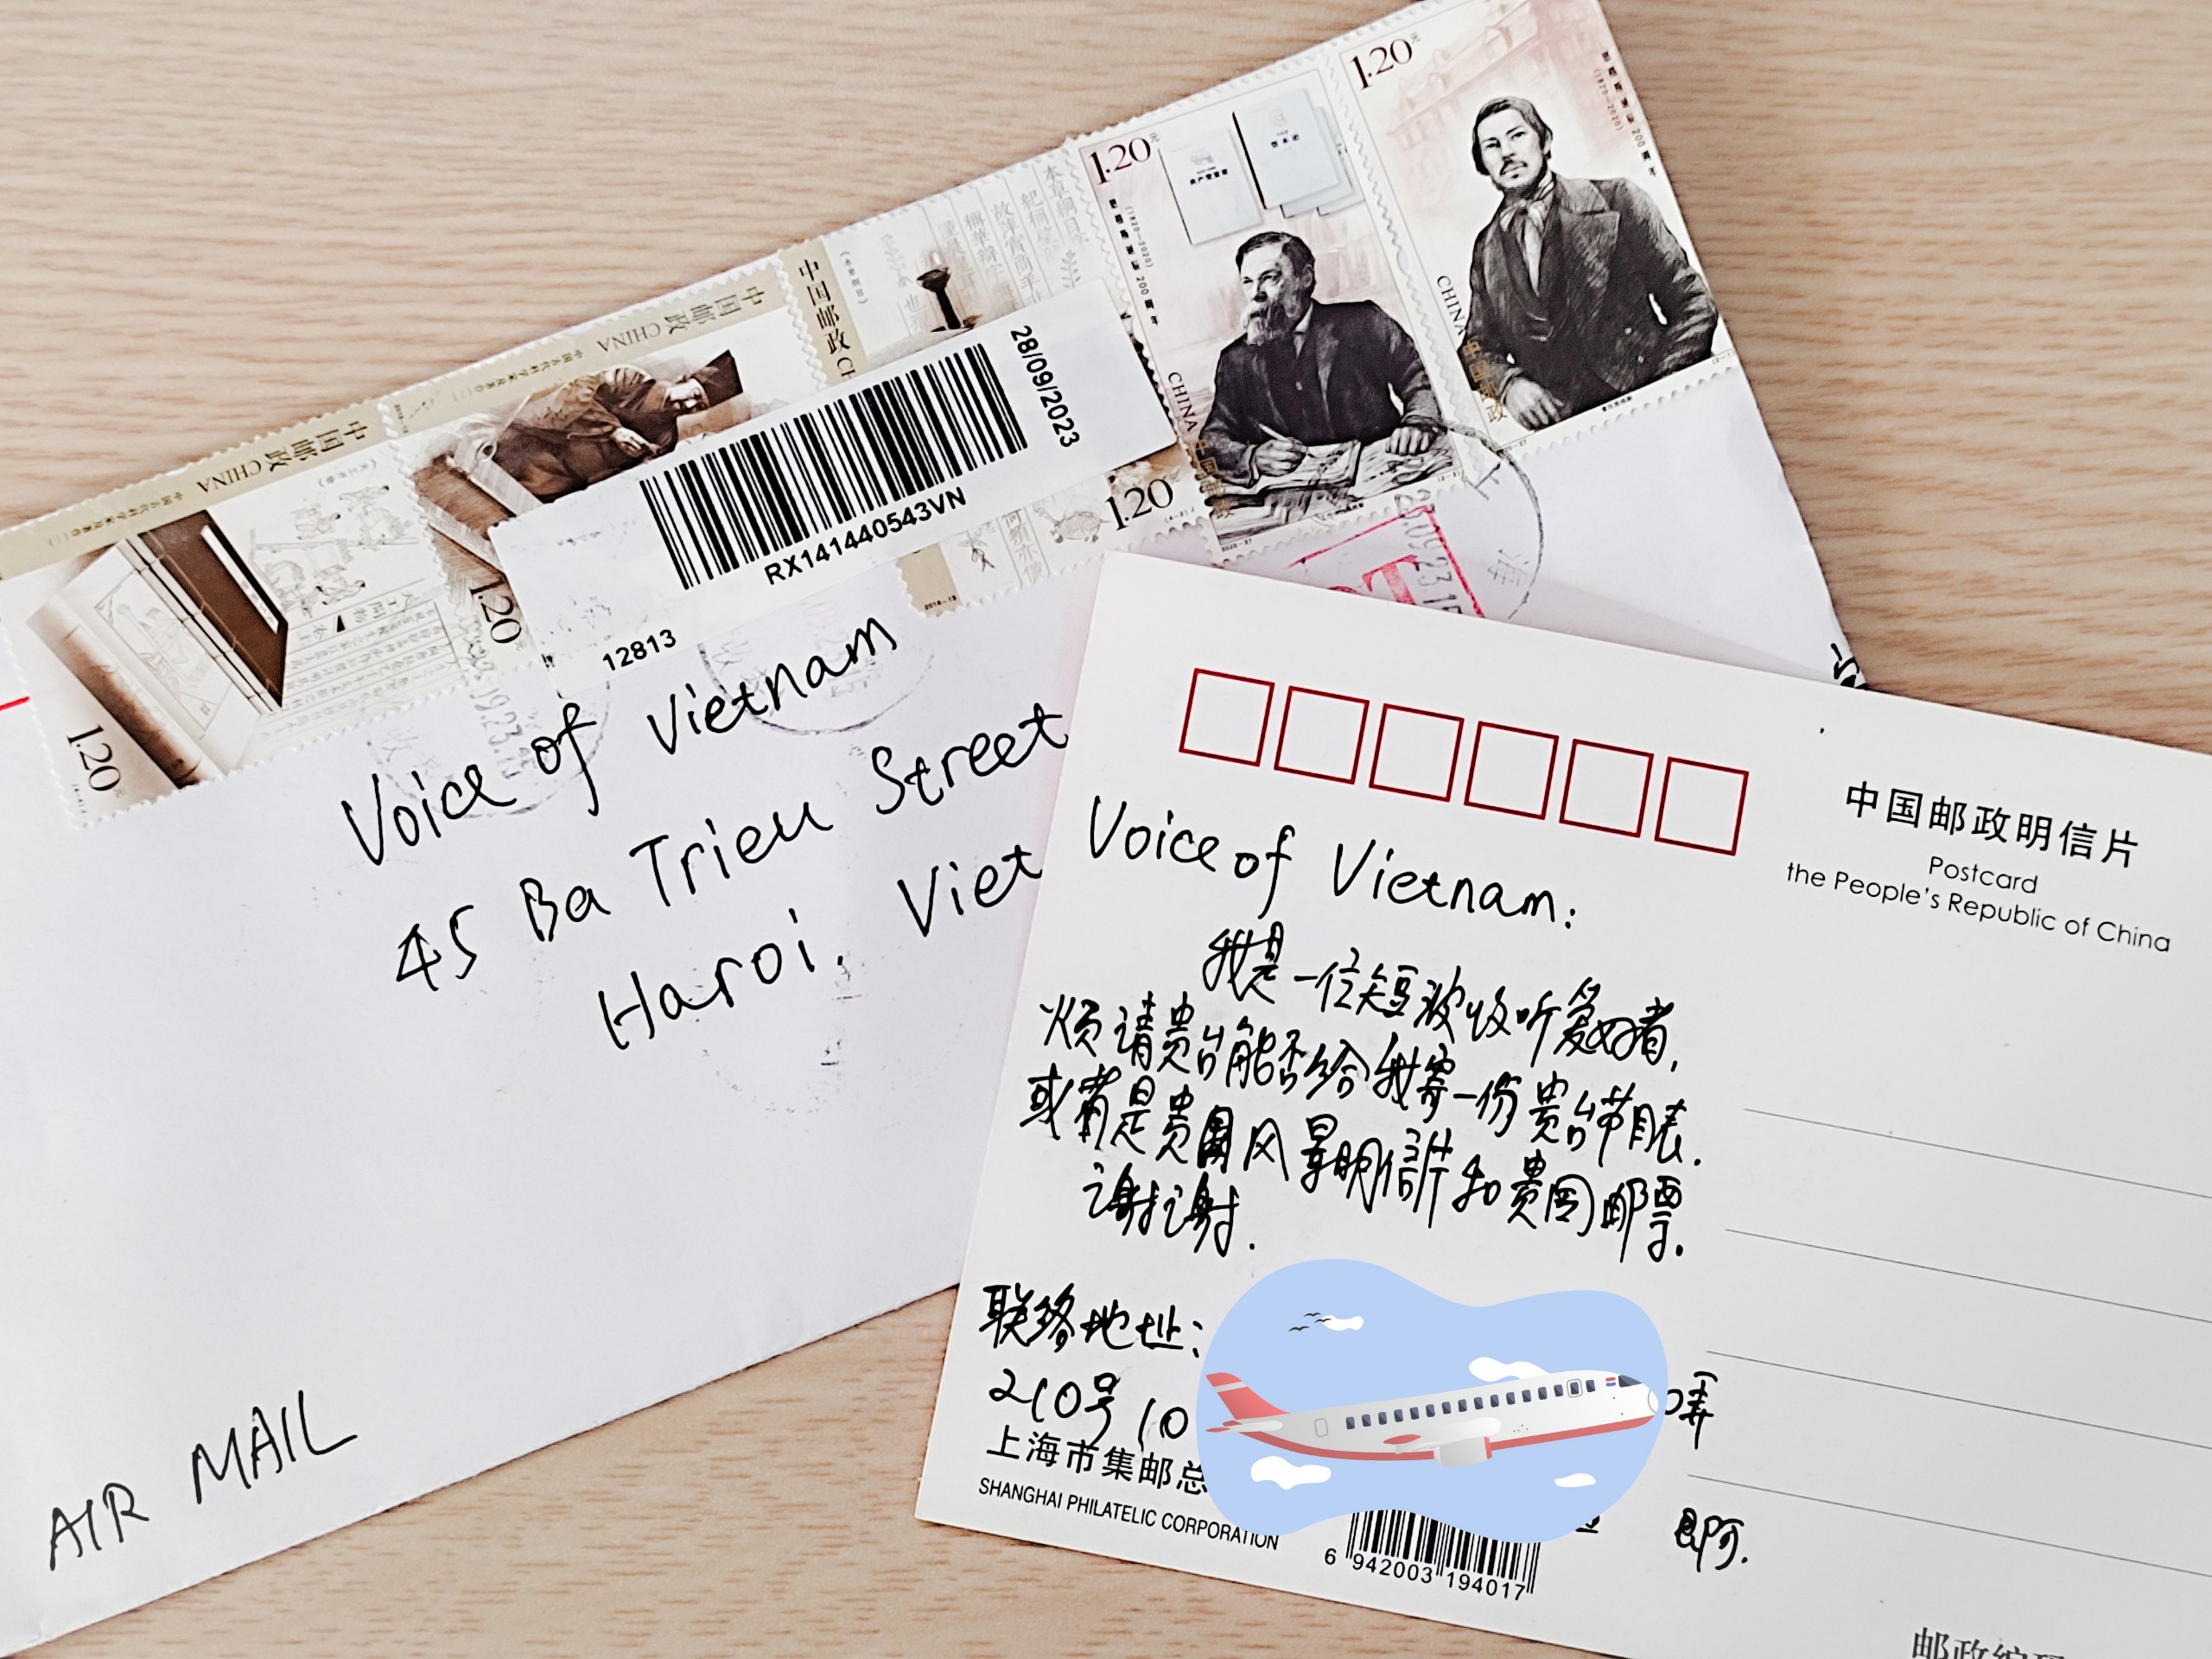 1.20元
CHINA 中国邮政
1.20元
共产党宣言
资本论
CHINA 中国邮政
2020-27
中国邮政
本草纲目
1.20
2018-13
中国邮政 CHINA
1.20元
中国邮政 CHINA
中国古代科学家及著作(二)
1.20元
28/09/2023
RX141440543VN
12813
Voice of Vietnam
45 Ba Trieu Street
Hanoi. Viet
AIR MAIL
中国邮政明信片
Postcard
the People's Republic of China
Voice of Vietnam:
我是一位短波收听爱好者,
烦请贵台能否给我寄一份贵台节目表.
或者是贵国风景明信片和贵国邮票.
谢谢.
联络地址:
210号10
弄
即可.
上海市集邮总
SHANGHAI PHILATELIC CORPORATION
6 942003 194017
邮政编码